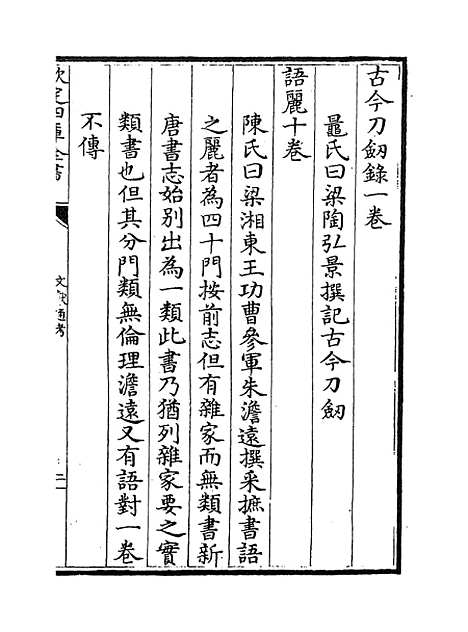 古今刀劒錄一卷
鼂氏曰梁陶弘景撰記古今刀劒
語麗十卷
陳氏曰梁湘東王功曹參軍朱澹遠撰采摭書語
之麗者為四十門按前志但有雜家而無類書新
唐書志始别出為一類此書乃猶列雜家要之實
類書也但其分門類無倫理澹遠又有語對一卷
不傳
欽定四庫全書
文獻通考
二